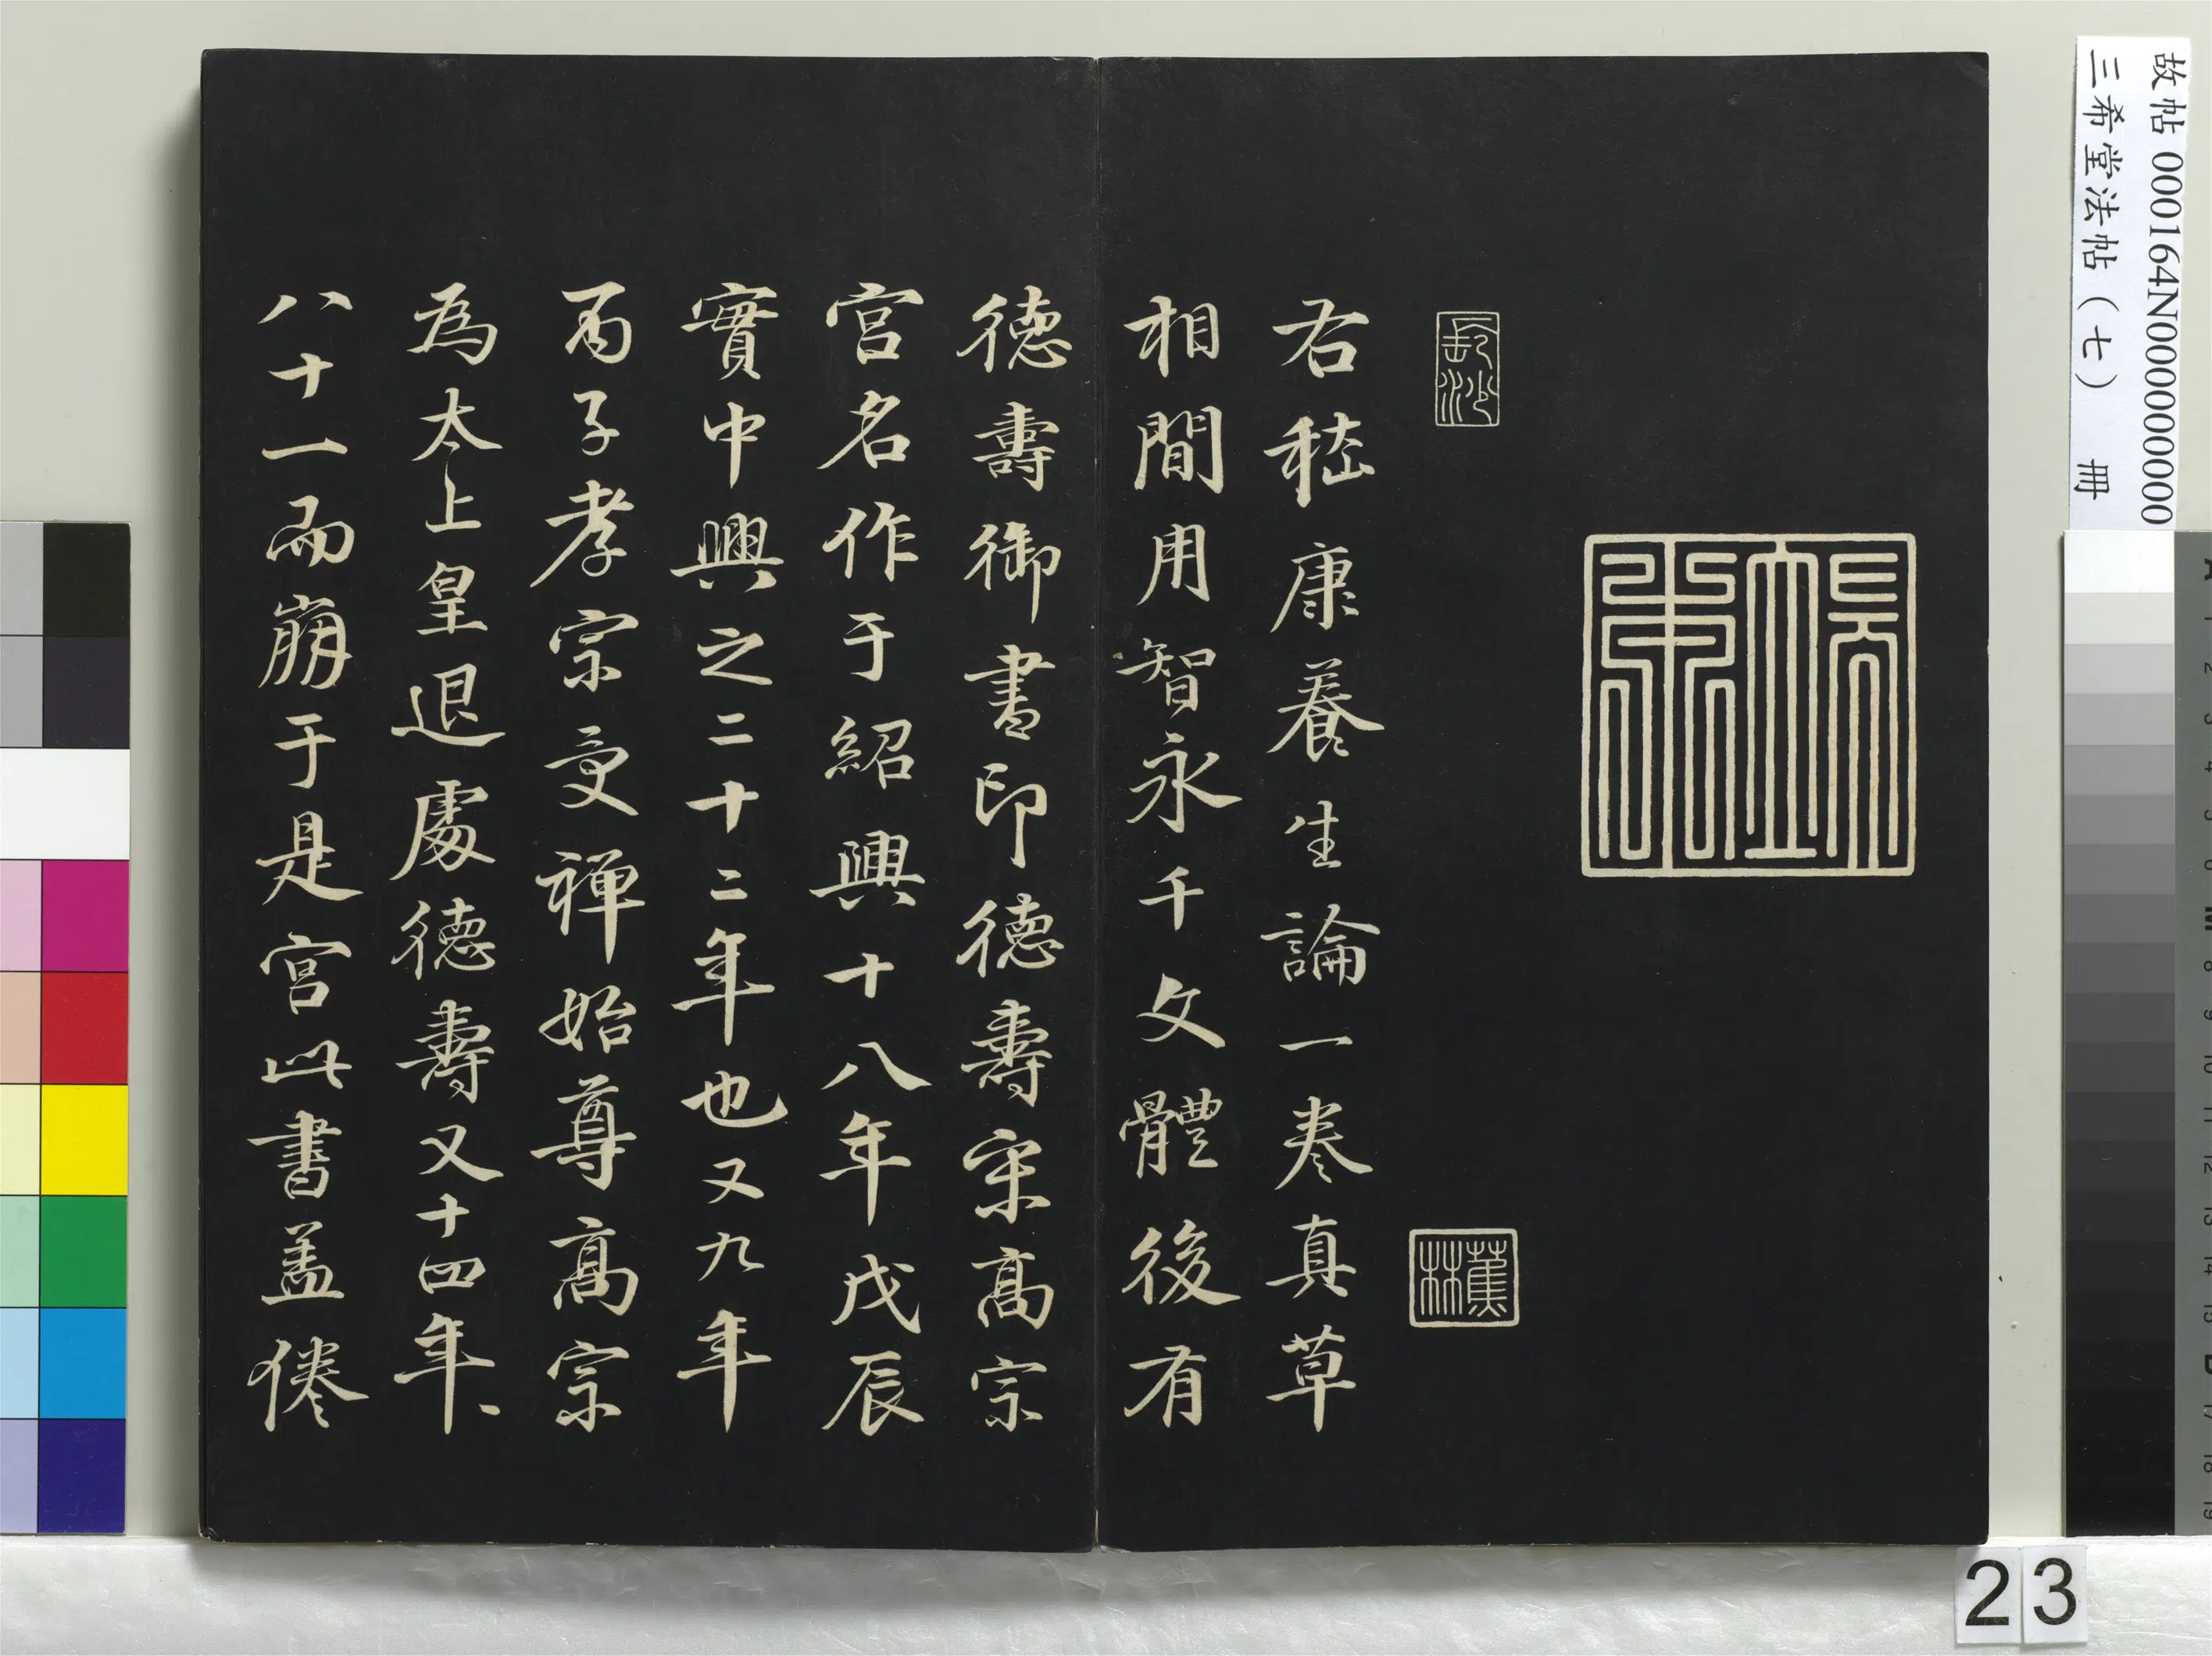 故帖 000164N000000000
三希堂法帖（七） 冊
蕉林
右嵇康養生論一卷真草
相間用智永千文體後有
德壽御書印德壽宋高宗
宮名作于紹興十八年戊辰
實中興之二十二年也又九年
丙子孝宗受禪始尊高宗
為太上皇退處德壽又十四年
八十一而崩于是宮此書盖倦
23